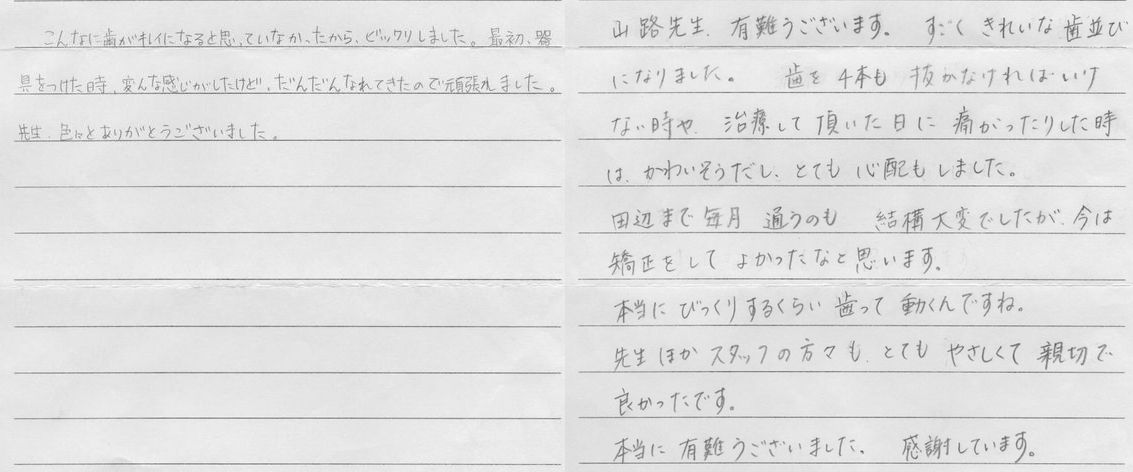 こんなに歯がキレイになると思っていなかったから、ビックリしました。最初、器
具をつけた時、変な感じがしたけど、だんだんなれてきたので頑張れました。
先生、色々とありがとうございました。
山路先生、有難うございます。 すごく きれいな 歯並び
になりました。 歯を 4本も 抜かなければ いけ
ない時や、治療して 頂いた日に 痛がったりした時
は、かわいそうだし、とても 心配も しました。
田辺まで 毎月 通うのも 結構大変でしたが、今は
矯正をして よかったなと思います。
本当に びっくりするくらい 歯って 動くんですね。
先生ほか スタッフの方々も、とても やさしくて 親切で
良かったです。
本当に 有難うございました。 感謝しています。